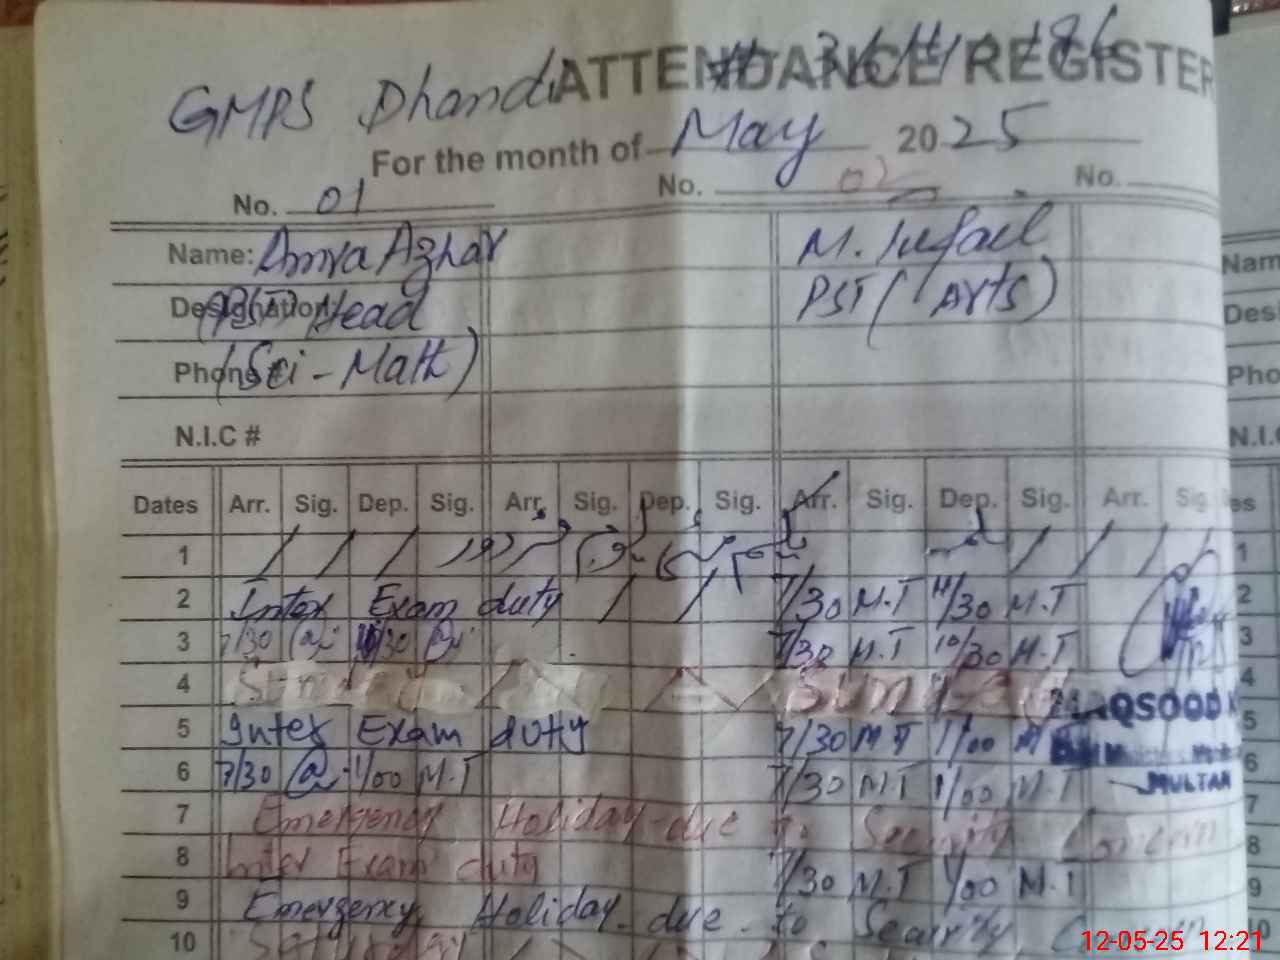 ATTENDANCE REGISTER
GMPS Dhandi
For the month of May 2025
No. 01 No. 02 No.
Name: Amra Azhar M. Tufail
Designation (PST) Head PST (Arts)
Phone (Sci - Math)
N.I.C #
Dates Arr. Sig. Dep. Sig. Arr. Sig. Dep. Sig. Arr. Sig. Dep. Sig. Arr. Sig
1
2 Inter Exam duty 7/30 M.T 11/30 M.T
3 7/30 7/30 M.T 10/30 M.T
4 Sunday Sunday
MAQSOOD
5 Inter Exam duty 7/30 M.T 1/00
6 7/30 1/00 M.T 7/30 M.T 1/00 M.T
MULTAN
7 Emergency Holiday due to Security Concern
8 Inter Exam duty 7/30 M.T 1/00 M.T
9 Emergency Holiday due to Security
10 Saturday
Nam
Des
Pho
N.I.
es
1
2
3
4
5
6
7
8
9
12-05-25 12:21